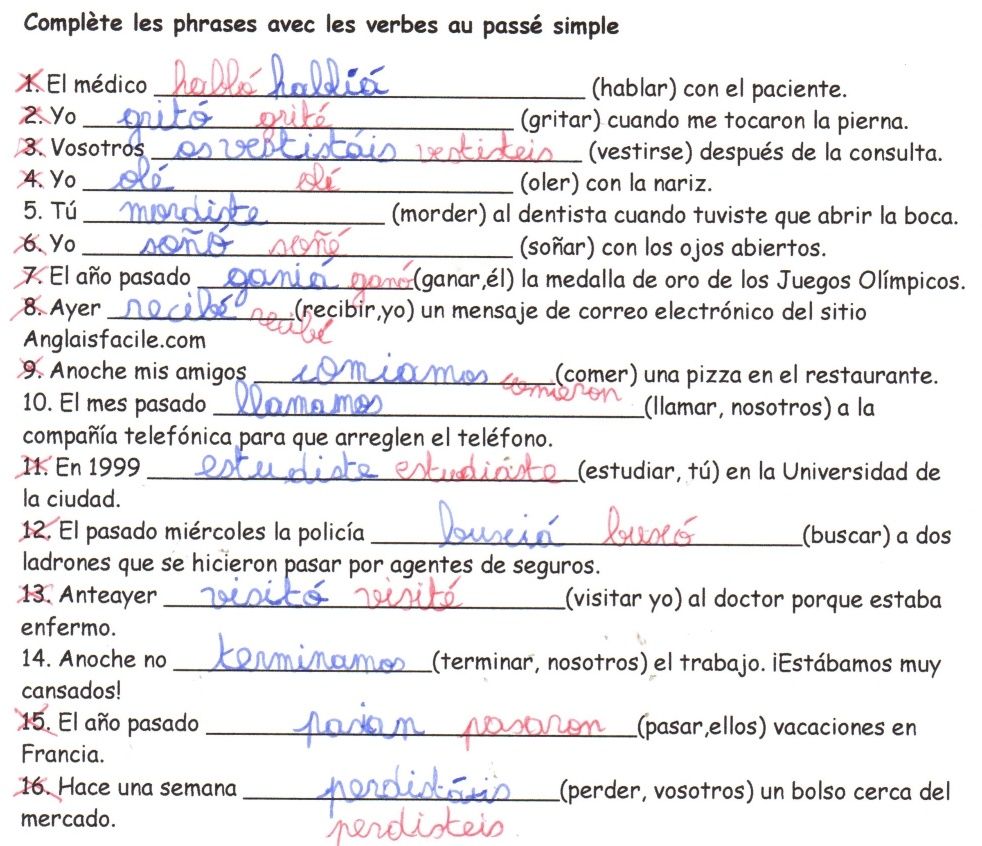 Complète les phrases avec les verbes au passé simple
1. El médico habló haldiá (hablar) con el paciente.
2. Yo gritó grité (gritar) cuando me tocaron la pierna.
3. Vosotros os vestistáis vestisteis (vestirse) después de la consulta.
4. Yo olé olí (oler) con la nariz.
5. Tú mordiste (morder) al dentista cuando tuviste que abrir la boca.
6. Yo soñó soñé (soñar) con los ojos abiertos.
7. El año pasado ganiá ganó (ganar,él) la medalla de oro de los Juegos Olímpicos.
8. Ayer recibé recibé (recibir,yo) un mensaje de correo electrónico del sitio
Anglaisfacile.com
9. Anoche mis amigos comiamos comieron (comer) una pizza en el restaurante.
10. El mes pasado llamamos (llamar, nosotros) a la
compañía telefónica para que arreglen el teléfono.
11. En 1999 estudiste estudiáste (estudiar, tú) en la Universidad de
la ciudad.
12. El pasado miércoles la policía busciá buscó (buscar) a dos
ladrones que se hicieron pasar por agentes de seguros.
13. Anteayer visitó visité (visitar yo) al doctor porque estaba
enfermo.
14. Anoche no terminamos (terminar, nosotros) el trabajo. ¡Estábamos muy
cansados!
15. El año pasado pasian pasaron (pasar,ellos) vacaciones en
Francia.
16. Hace una semana perdistáis (perder, vosotros) un bolso cerca del
mercado. perdisteis